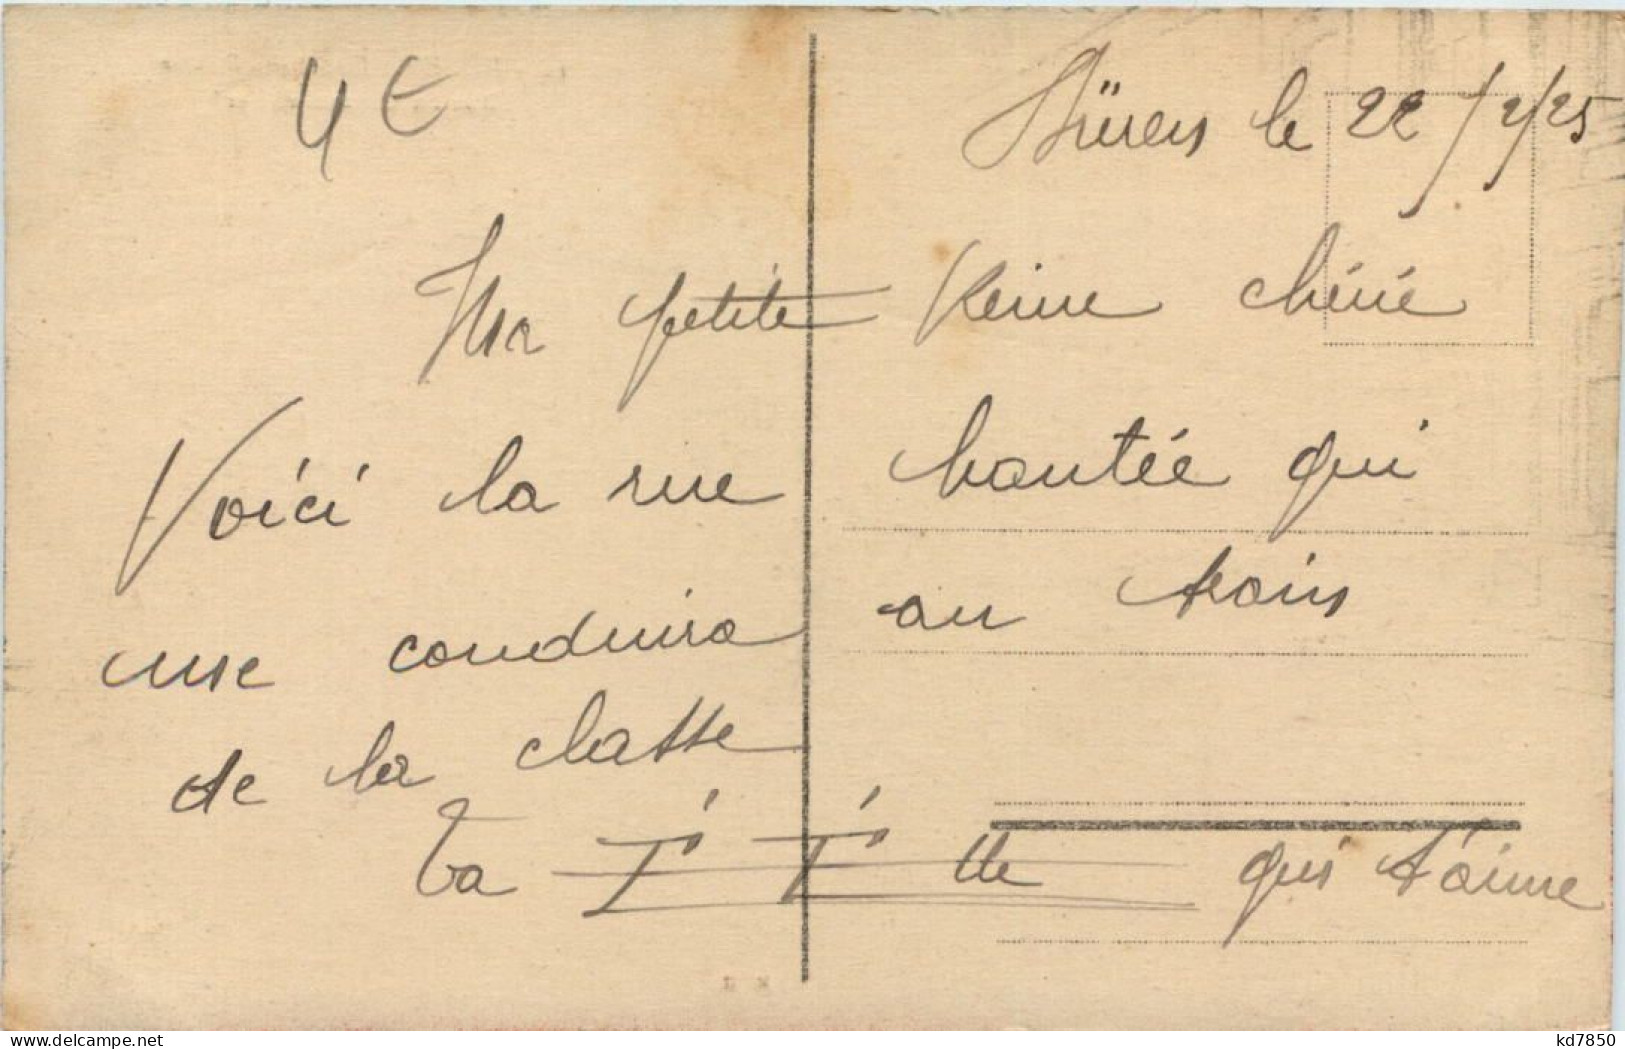 4 €
Düren le 22/2/25
Ma petite Reine chérie
Voici la rue hantée qui
me conduira au train
de la classe
Ta I I tte qui t'aime
kd7850